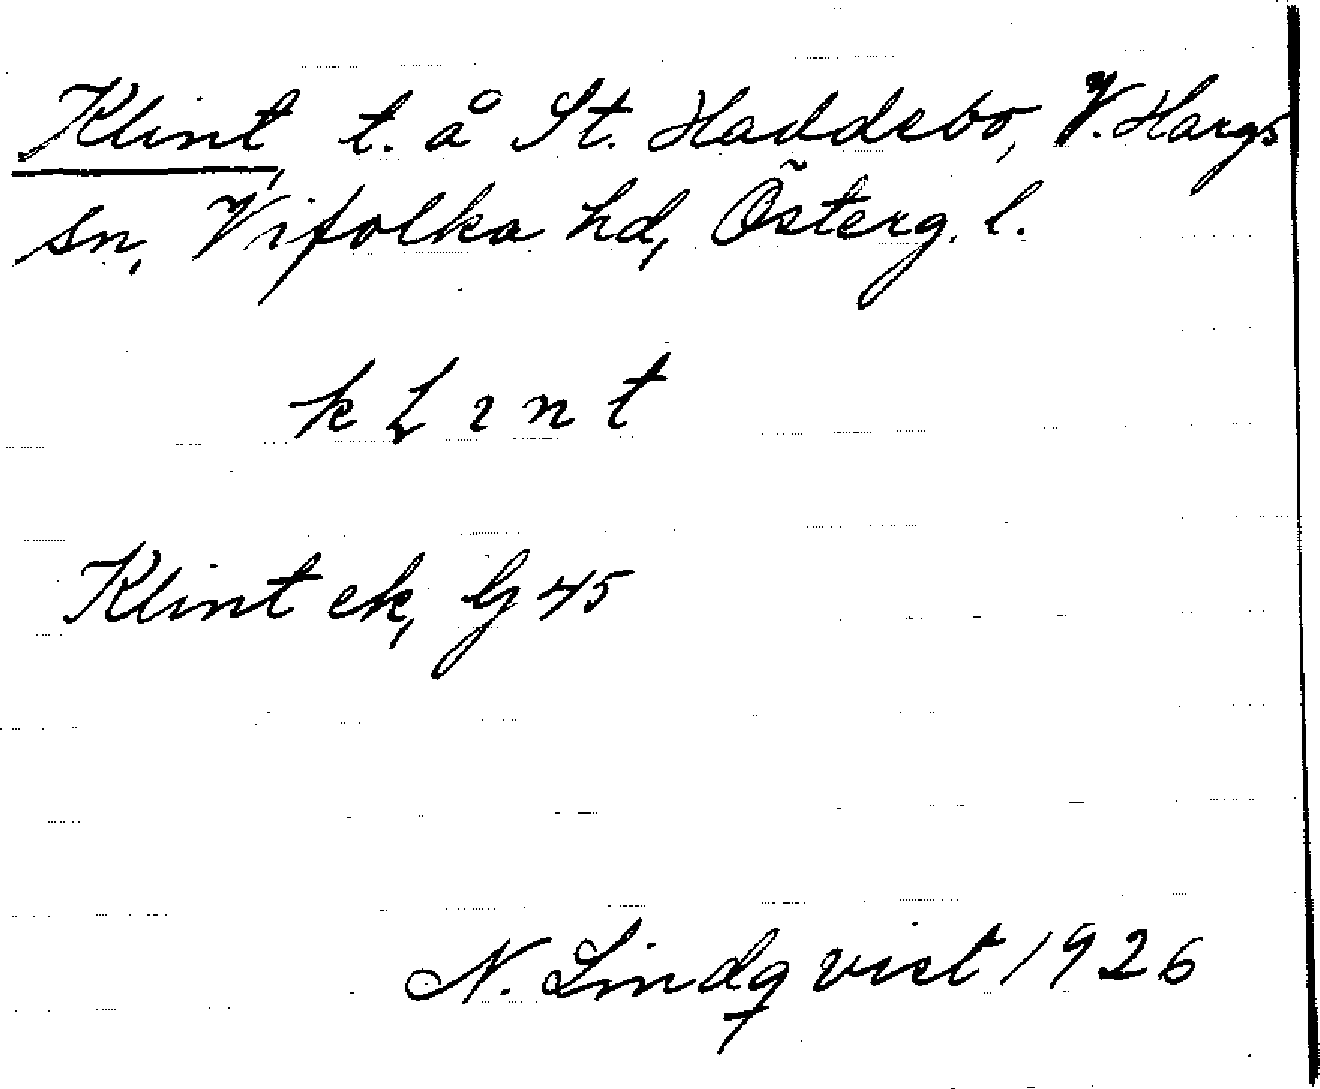 Klint, t. å St. Haddebo, V. Hargs
sn, Vifolka hd, Österg. l.
klınt
Klint ek, Gj 45
N. Lindqvist 1926